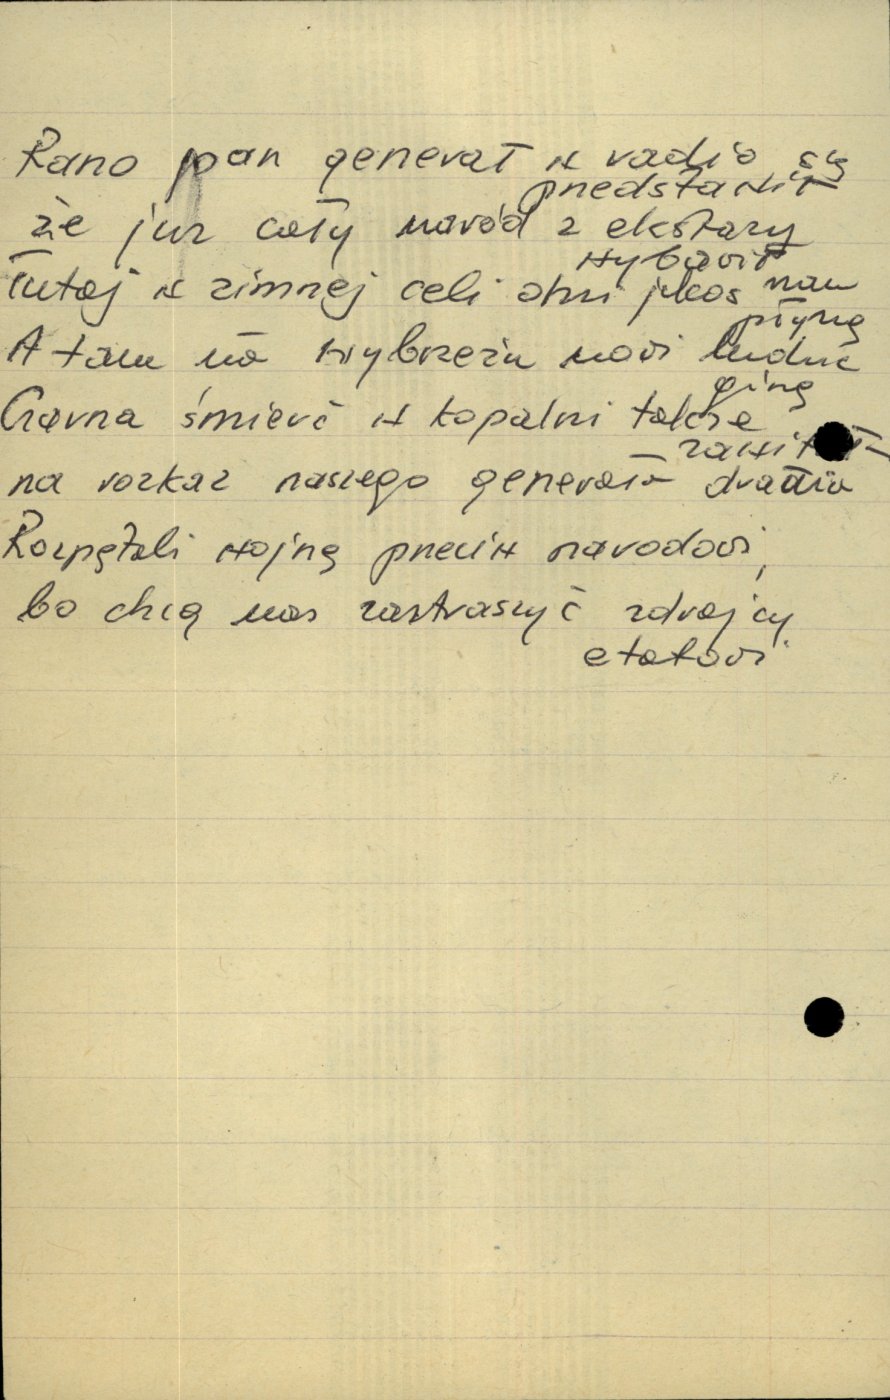 Rano pan generał w radio się
przedstawił
że już cały naród z ekstazy
wybawił
Tutaj w zimnej celi dni jakoś nam
płyną
A tam na wybrzeżu nasi ludzie
giną
Czarna śmierć w kopalni także
zawitała
na rozkaz naszego generała drania
Rozpętali wojnę przeciw narodowi,
bo chcą nas zastraszyć zdrajcy
etatowi